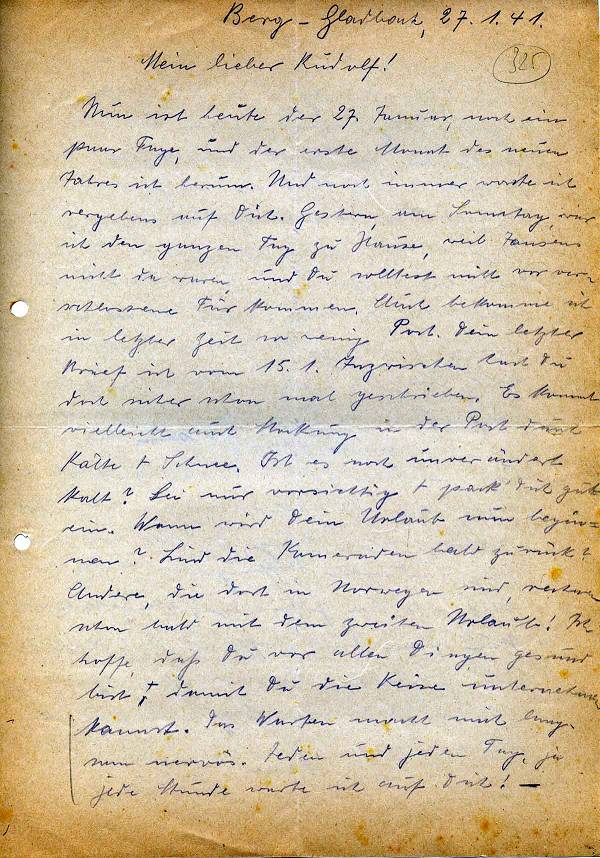 Berg-Gladbach, 27.1.41.
325
Mein lieber Rudolf!
Nun ist heute der 27. Januar, noch ein
paar Tage, und der erste Monat des neuen
Jahres ist herum. Und noch immer warte ich
vergebens auf Dich. Gestern, am Sonntag, war
ich den ganzen Tag zu Hause, weil Jansens
nicht da waren, und Du solltest nicht vor ver-
schlossene Tür kommen. Auch bekomme ich
in letzter Zeit so wenig Post. Dein letzter
Brief ist vom 15.1. Inzwischen hast Du
doch sicher schon mal geschrieben. Es kommt
vielleicht auch Stockung in der Post durch
Kälte + Schnee. Ist es noch unverändert
kalt? Sei nur vorsichtig + pack' Dich gut
ein. Wann wird Dein Urlaub nun begin-
nen? Sind die Kameraden bald zurück?
Andere, die dort in Norwegen sind, rechnen
schon bald mit dem zweiten Urlaub! Ich
hoffe, daß Du vor allen Dingen gesund
bist, damit Du die Reise unternehmen
kannst. Das Warten macht mich lang-
sam nervös. Jeden und jeden Tag, ja
jede Stunde warte ich auf Dich! —